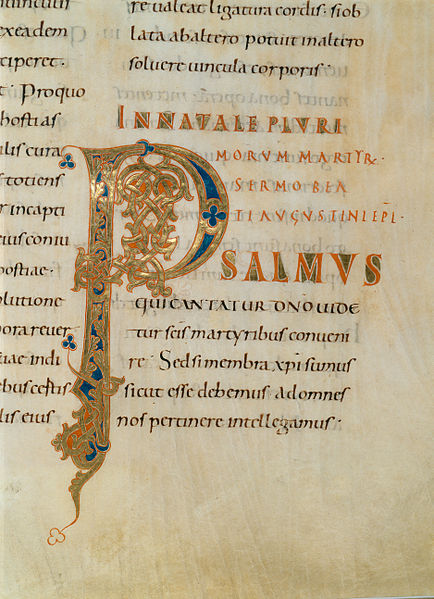 uinculis
exeadem
ciperet ·
t · Proquo
hostias
ilis cura
s totiens
r incapti
eius coniu
hostiae ·
olutione
pora reuer
tiae indi
lis eius
re ualeat ligatura cordis · si ob
lata abaltero potuit inaltero
soluere uincula corporis ·
IN NATALE PLURI
MORUM MARTYR ·
SERMO BEA
TI AUGUSTINI EPI ·
PSALMUS
QUI CANTATUR DNO UIDE
tur scis martyribus conueni
re · Sedsi membra xpi sumus
sicut esse debemus · adomnes
nos pertinere intellegamus ·